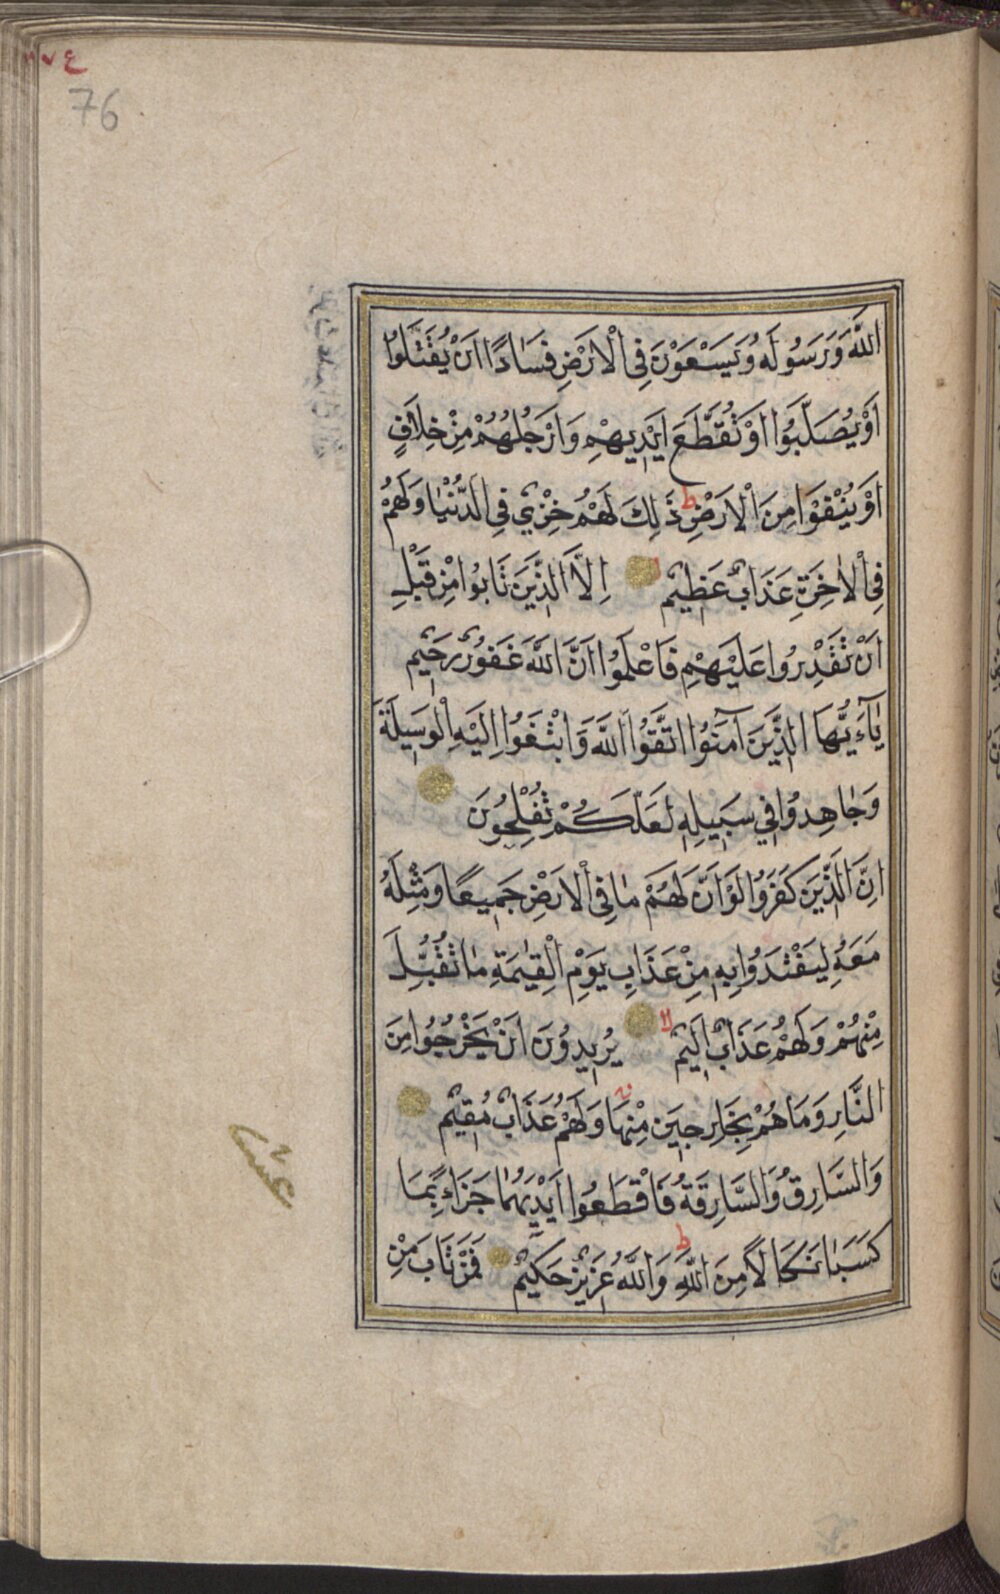 ٧٤
76
اللّٰهَ وَرَسُولَهُ وَيَسْعَوْنَ فِى الْاَرْضِ فَسَادًا اَنْ يُقَتَّلُوا
اَوْ يُصَلَّبُوا اَوْ تُقَطَّعَ اَيْدِيهِمْ وَاَرْجُلُهُمْ مِنْ خِلَافٍ
اَوْ يُنْفَوْا مِنَ الْاَرْضِ ط ذٰلِكَ لَهُمْ خِزْيٌ فِى الدُّنْيَا وَلَهُمْ
فِى الْاٰخِرَةِ عَذَابٌ عَظِيمٌ اِلَّا الَّذِينَ تَابُوا مِنْ قَبْلِ
اَنْ تَقْدِرُوا عَلَيْهِمْ فَاعْلَمُوا اَنَّ اللّٰهَ غَفُورٌ رَحِيمٌ
يَٓاءَيُّهَا الَّذِينَ اٰمَنُوا اتَّقُوا اللّٰهَ وَابْتَغُوا اِلَيْهِ الْوَسِيلَةَ
وَجَاهِدُوا فِي سَبِيلِهِ لَعَلَّكُمْ تُفْلِحُونَ
اِنَّ الَّذِينَ كَفَرُوا لَوْ اَنَّ لَهُمْ مَا فِى الْاَرْضِ جَمِيعًا وَمِثْلَهُ
مَعَهُ لِيَفْتَدُوا بِهِ مِنْ عَذَابِ يَوْمِ الْقِيٰمَةِ مَا تُقُبِّلَ
مِنْهُمْ وَلَهُمْ عَذَابٌ اَلِيمٌ لا يُرِيدُونَ اَنْ يَخْرُجُوا مِنَ
النَّارِ وَمَا هُمْ بِخَارِجِينَ مِنْهَا وَلَهُمْ عَذَابٌ مُقِيمٌ
وَالسَّارِقُ وَالسَّارِقَةُ فَاقْطَعُوا اَيْدِيَهُمَا جَزَاءً بِمَا
كَسَبَا نَكَالًا مِنَ اللّٰهِ ط وَاللّٰهُ عَزِيزٌ حَكِيمٌ فَمَنْ تَابَ مِنْ